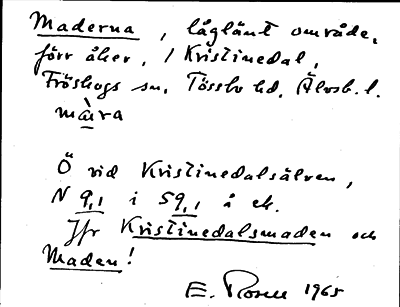 Maderna, låglänt område,
förr åker, i Kristinedal,
Fröskogs sn, Tössbo hd, Älvsb. l.
màra
Ö vid Kristinedalsälven,
N 9,1 i 59,1 å ek.
Jfr Kristinedalsmaden och
Maden!
E. Rosell 1965